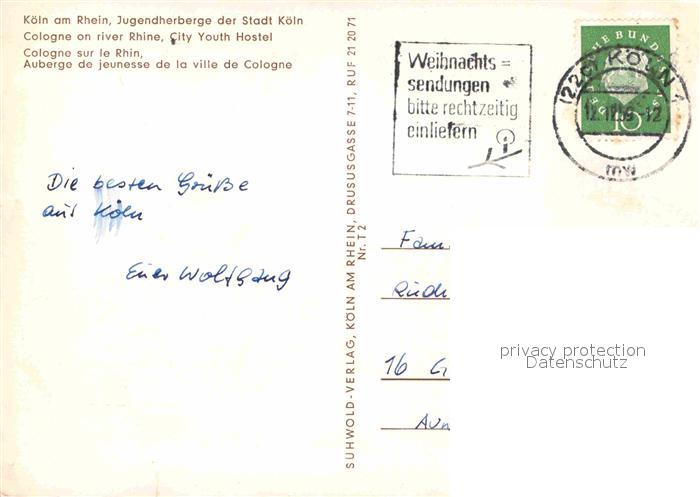 Köln am Rhein, Jugendherberge der Stadt Köln
Cologne on river Rhine, City Youth Hostel
Cologne sur le Rhin,
Auberge de jeunesse de la ville de Cologne
Die besten Grüße
aus Köln
Euer Wolfgang
SUHWOLD-VERLAG, KÖLN AM RHEIN, DRUSUSGASSE 7-11, RUF 21 20 71
Nr. T 2
Weihnachts=
sendungen
bitte rechtzeitig
einliefern
HE BUND
10
(22c) KÖLN 1
12.12.59-12
mw
Fam.
16 G
privacy protection
Datenschutz